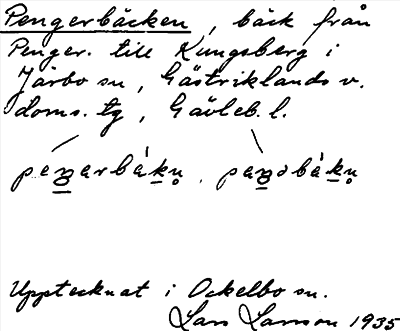 Pengerbäcken, bäck från
Penger. till Kungsberg i
Järbo sn, Gästriklands v.
doms. tg, Gävleb. l.
pèŋarbá̀kn̥. paŋ
Upptecknat i Ockelbo sn.
Lars Larsson 1935